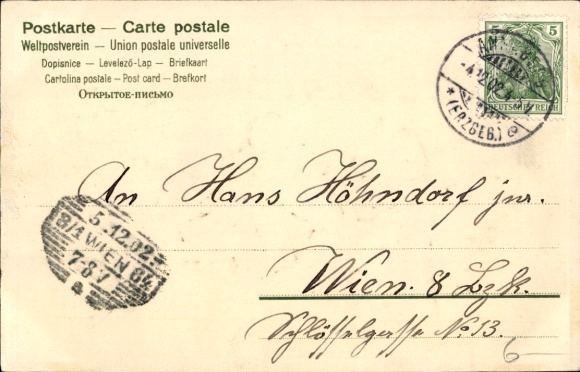 Postkarte — Carte postale
Weltpostverein — Union postale universelle
Dopisnice — Levelező-Lap — Briefkaart
Cartolina postale — Post card — Brefkort
Открытое-письмо
5 5
DEUTSCHES REICH
4.12.02
*(ERZGEB.)
5.12.02
8/1 WIEN 64
7 8 V
a
An Hans Höhndorf jnr.
Wien. 8 Bzk.
Schlösselgasse No. 13.
6